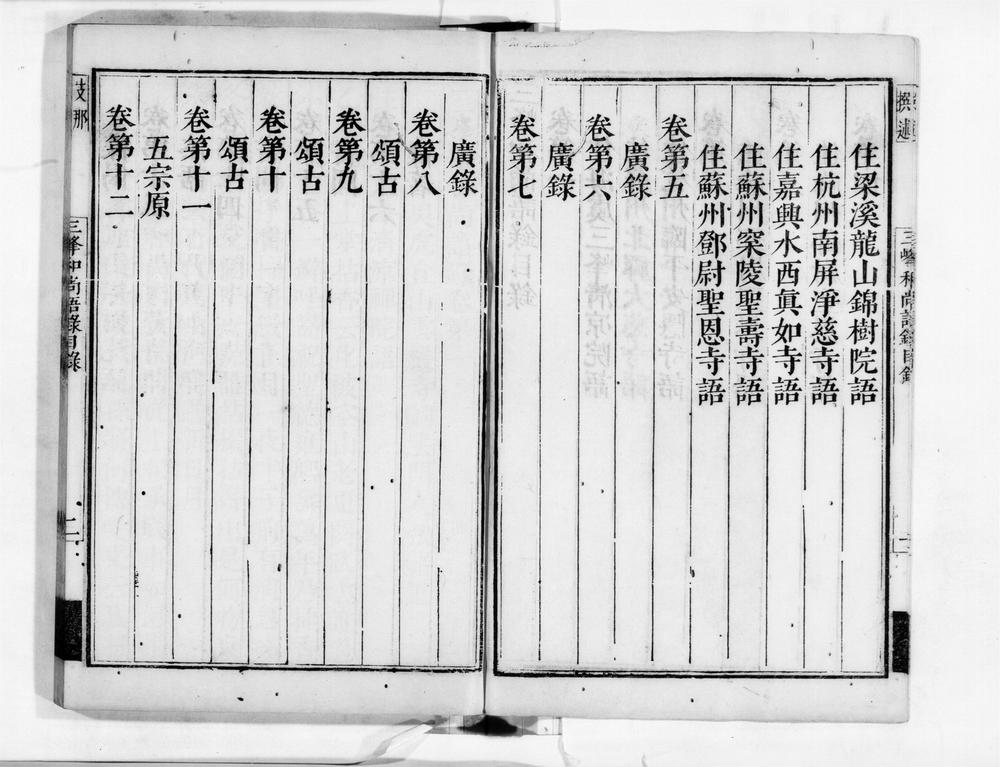 撰述
三峰和尚語錄目錄
二
住梁溪龍山錦樹院語
住杭州南屏淨慈寺語
住嘉興水西眞如寺語
住蘇州寀陵聖壽寺語
住蘇州鄧尉聖恩寺語
卷第五
廣錄
卷第六
廣錄
卷第七
廣錄
卷第八
頌古
卷第九
頌古
卷第十
頌古
卷第十一
五宗原
卷第十二
支那
三峰和尚語錄目錄
二